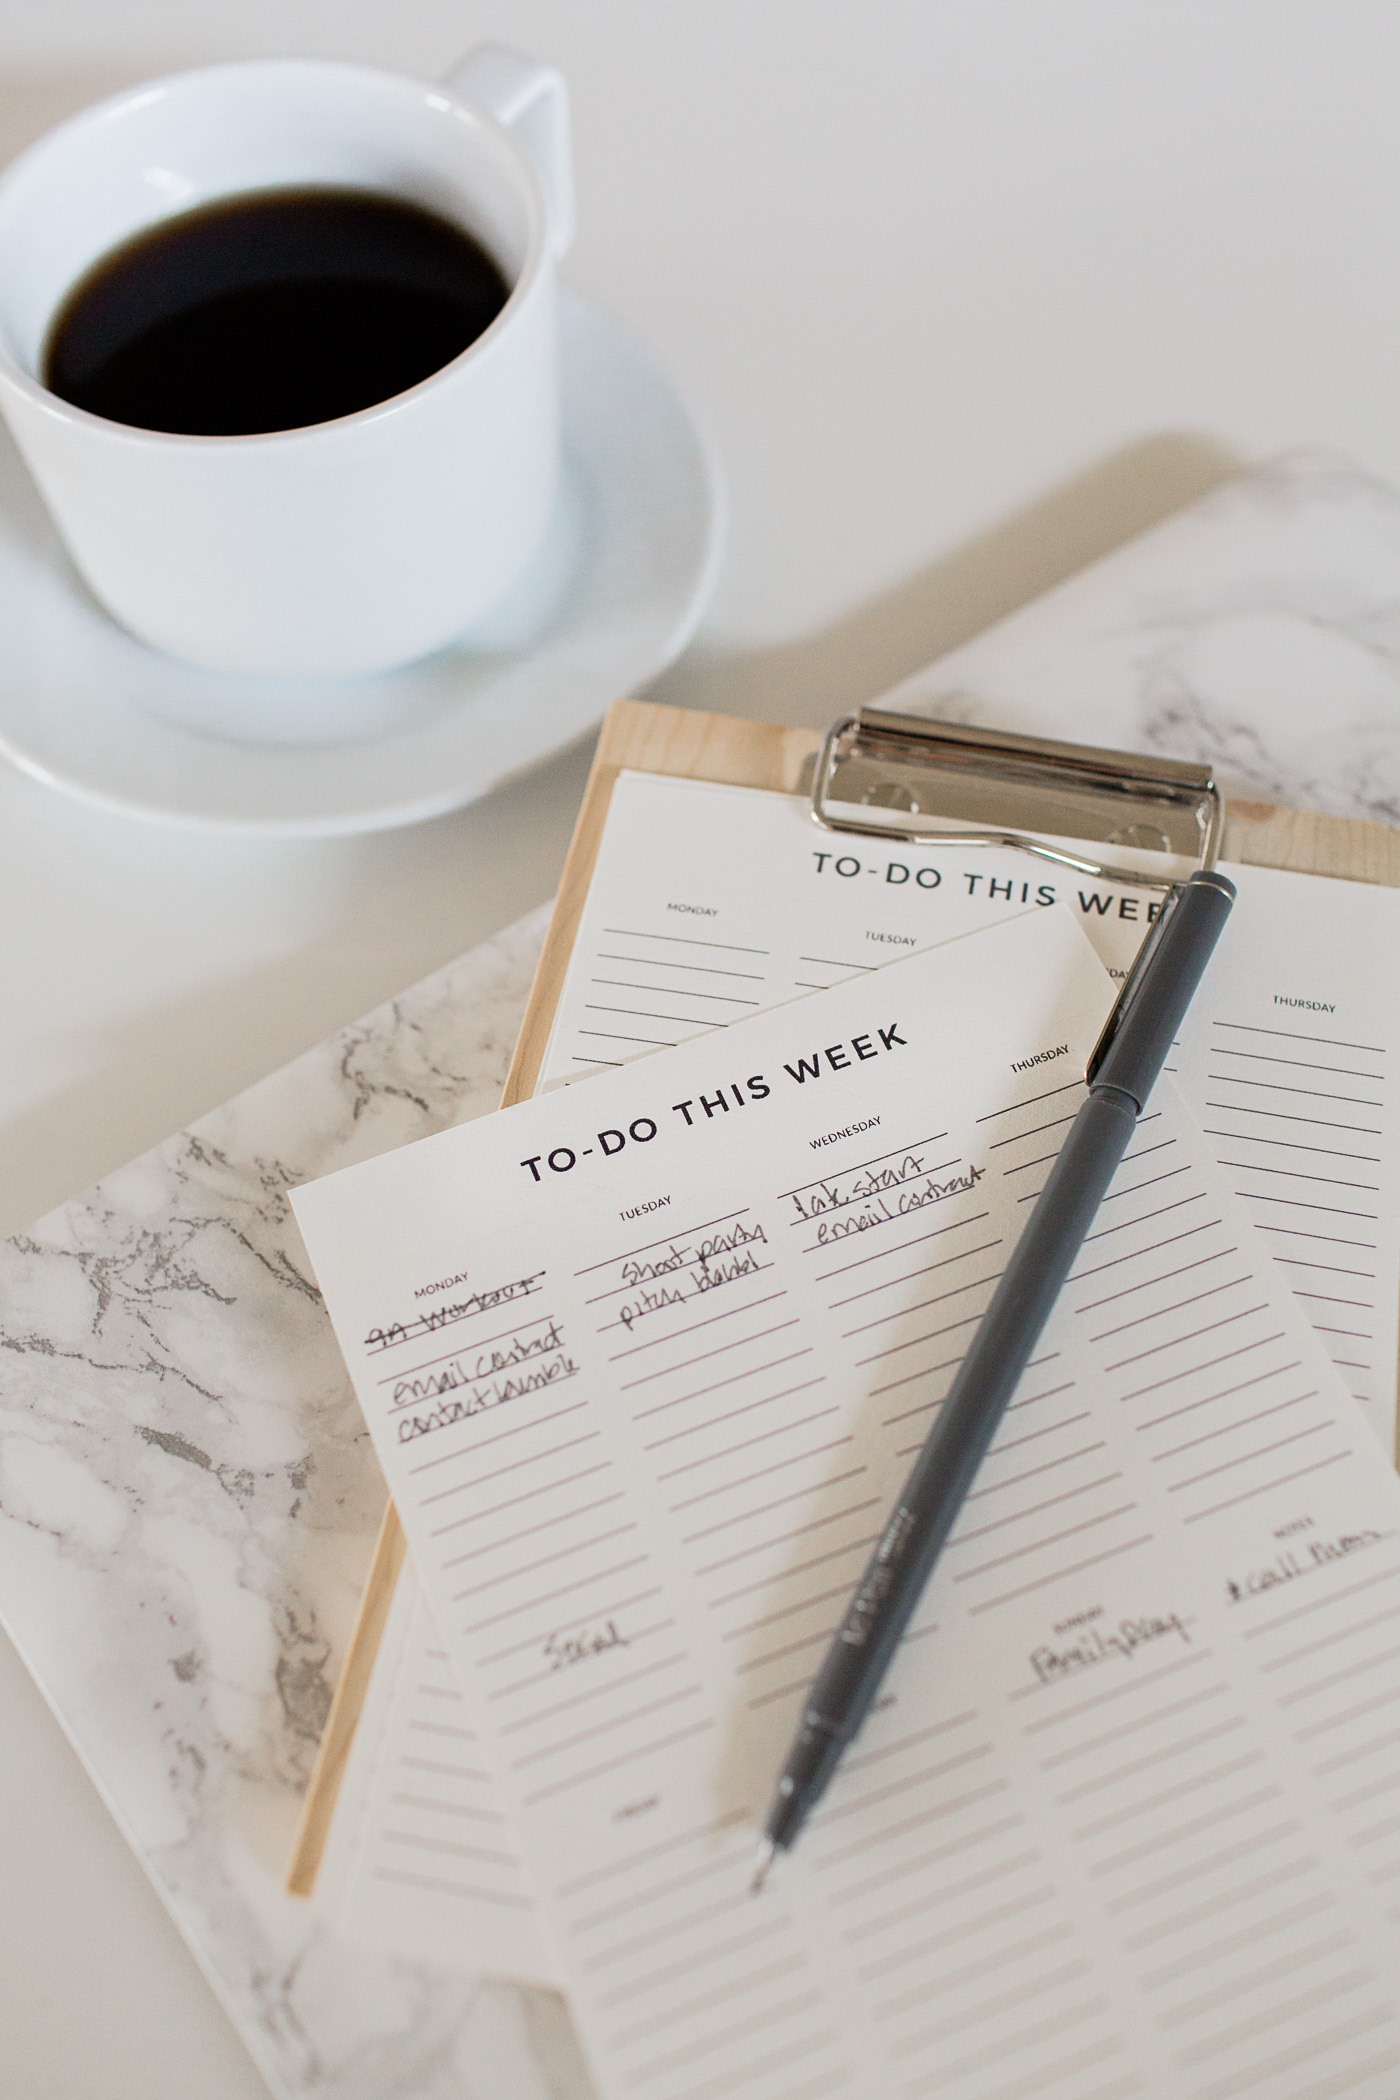 TO-DO THIS WEE
MONDAY
TUESDAY
DAY
THURSDAY
TO-DO THIS WEEK
MONDAY
9A workout
email contract
contact
TUESDAY
shoot party
pitch
WEDNESDAY
late start
email contract
THURSDAY
NOTES
call
SUNDAY
Family Day